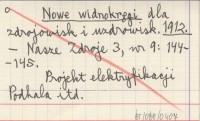 Nowe widnokręgi dla
zdrojowisk i uzdrowisk. 1913.
— Nasze Zdroje 3, nr 9: 144-
-145.
Projekt elektryfikacji
Podhala itd.